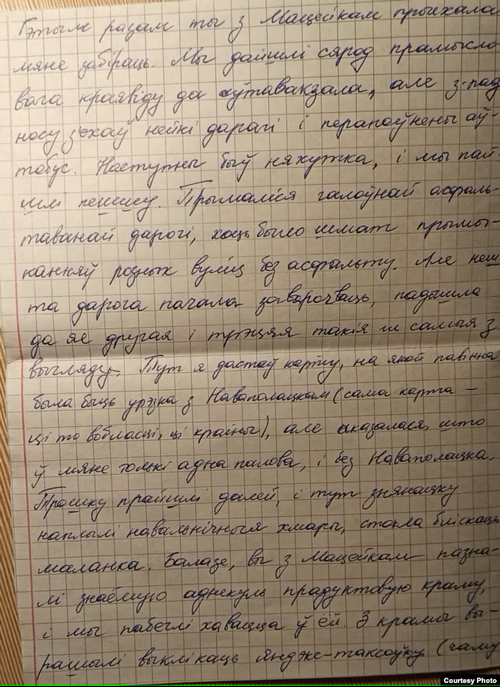 Гэтым разам ты з Мацейкам прыехала
мяне забіраць. Мы дайшлі сярод прамысло
вага краявіду да аўтавакзала, але з-пад
носу з'ехаў нейкі дарагі і перапоўнены аў-
тобус. Наступны быў няхутка, і мы пай
шлі пешшу. Прымаліся галоўнай асфаль-
таванай дарогі, хоць было шмат прымы-
канняў розных вуліц без асфальту. Але неш
та дарога пачала заварочваць, падышла
да яе другая і трэцяя такія ж самыя з
выгляду. Тут я дастаў карту, на якой павінна
была быць урэзка з Наваполацкам (сама карта –
ці то вобласці, ці краіны), але аказалася, што
ў мяне толькі адна палова, і без Наваполацка.
Трошку прайшлі далей, і тут знянацку
наплылі навальнічныя хмары, стала бліскаць
маланка. Балазе, вы з Мацейкам пазна-
лі знаёмую аднекуль прадуктовую краму,
і мы пабеглі хавацца ў ёй. З крамы вы-
рашылі выклікаць Яндэкс-таксоўку (саму
Courtesy Photo